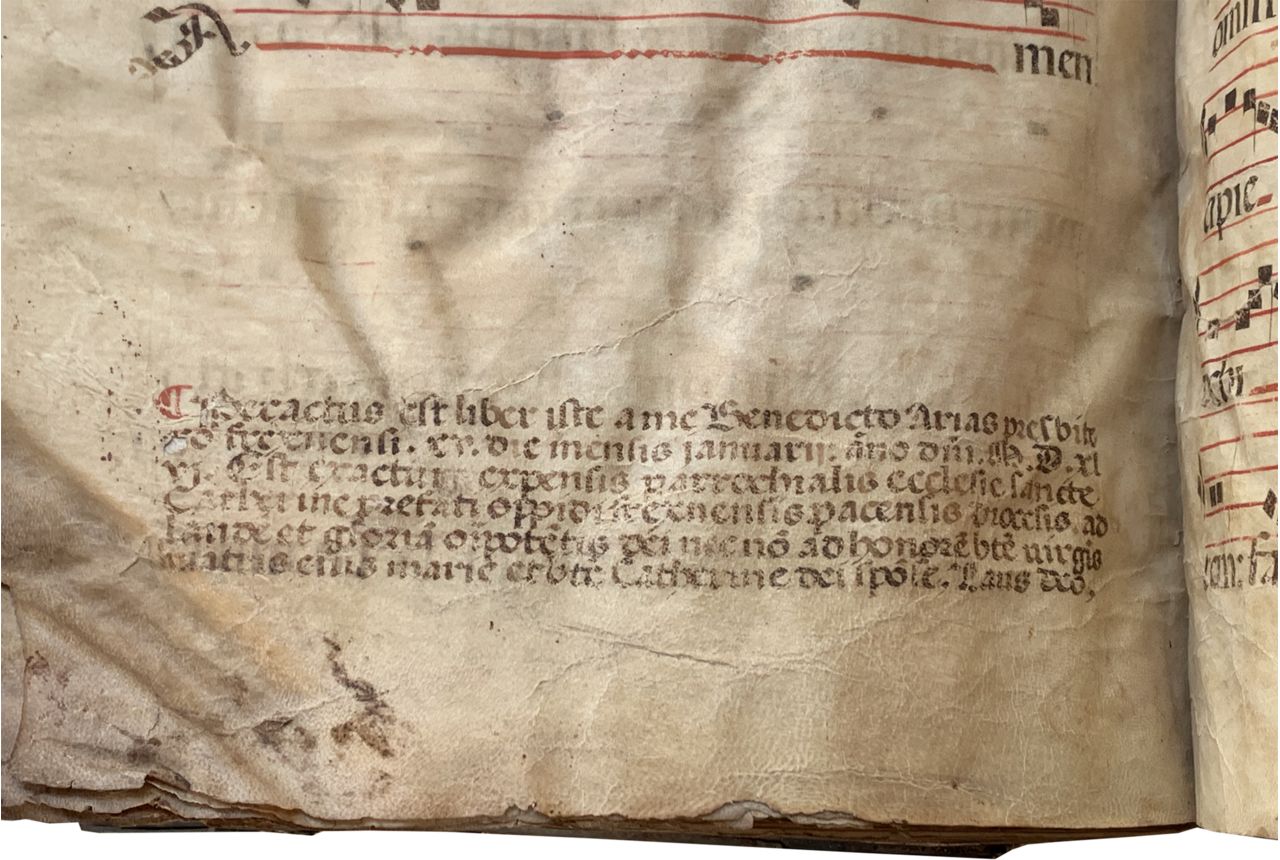 A men
¶ Peractus est liber iste a me Benedicto Arias presbite
ro frexenensi. xv. die mensis januarij. año dñi. M. D. xl
vj. Est exactum expensis parrochialis ecclesie sancte
Catherine prefati oppidi frexenensis pacensis diocesis, ad
laudē et gloriā oīpotētis dei nec nō ad honorē btē uirgīs
matris eius marie et btē Catherine dei spōse. Laus deo,
omni
apie